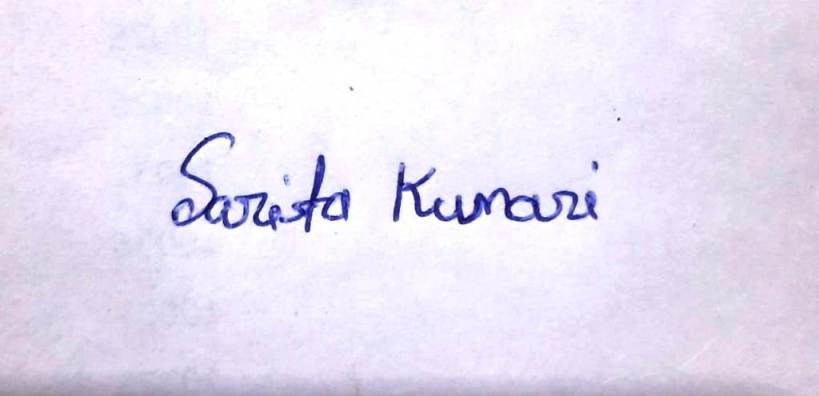 Sarita Kumari